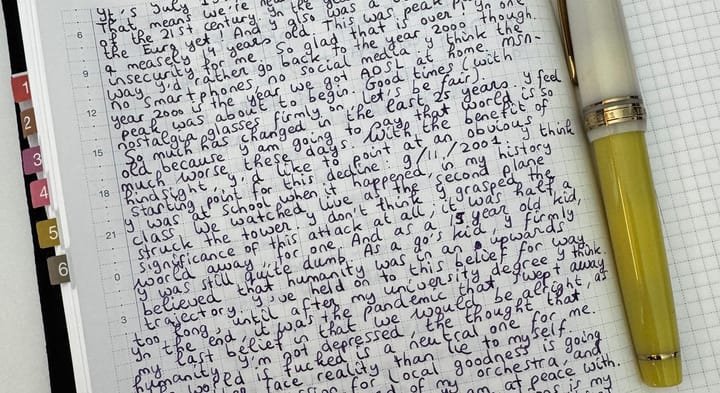 yt's July we're in the year
That means
of the 21st century. y also was a
the Euro yet. And peak play in one
a measely years old. This was
insecurity for me. So glad that is over though.
way y'd rather go back to the year 2000,
no smartphones, no social media, y think the
year 2000 is the year we got ADSL at home. MSN-
peak was about to begin. Good times (with
nostalgia glasses firmly on, let's be fair).
So much has changed in the last 25 years. y feel
old because y am going to say that world is so
much worse these days. With the benefit of
hindsight, y'd like to point at an obvious
starting point for this decline: 9/11/2001. y think
y was at school when it happened, in my history
class. We watched live as the second plane
struck the tower. y don't think y grasped the
significance of this attack at all, it was half a
world away for one. And as a 15 year old kid,
y was still quite dumb. As a 90's kid, y firmly
believed that humanity was in an upwards
trajectory. y've held on to this belief for way
too long, until after my university degree y think.
yn the end it was the pandemic that swept away
my last belief in that we would be alright, as
humanity. y'm not depressed, the thought that
world is fucked is a neutral one for me.
face reality than lie to myself.
for local goodness is going
of my orchestra, and
am at peace with.
is my
6
9
12
15
18
21
0
3
1
2
3
4
5
6